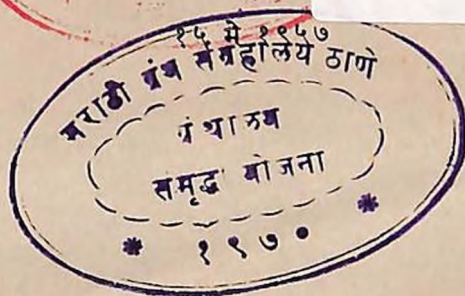 १५ मे १९५७
मराठी ग्रंथ संग्रहालय ठाणे
ग्रंथालय
समृद्ध योजना
* १९७० *